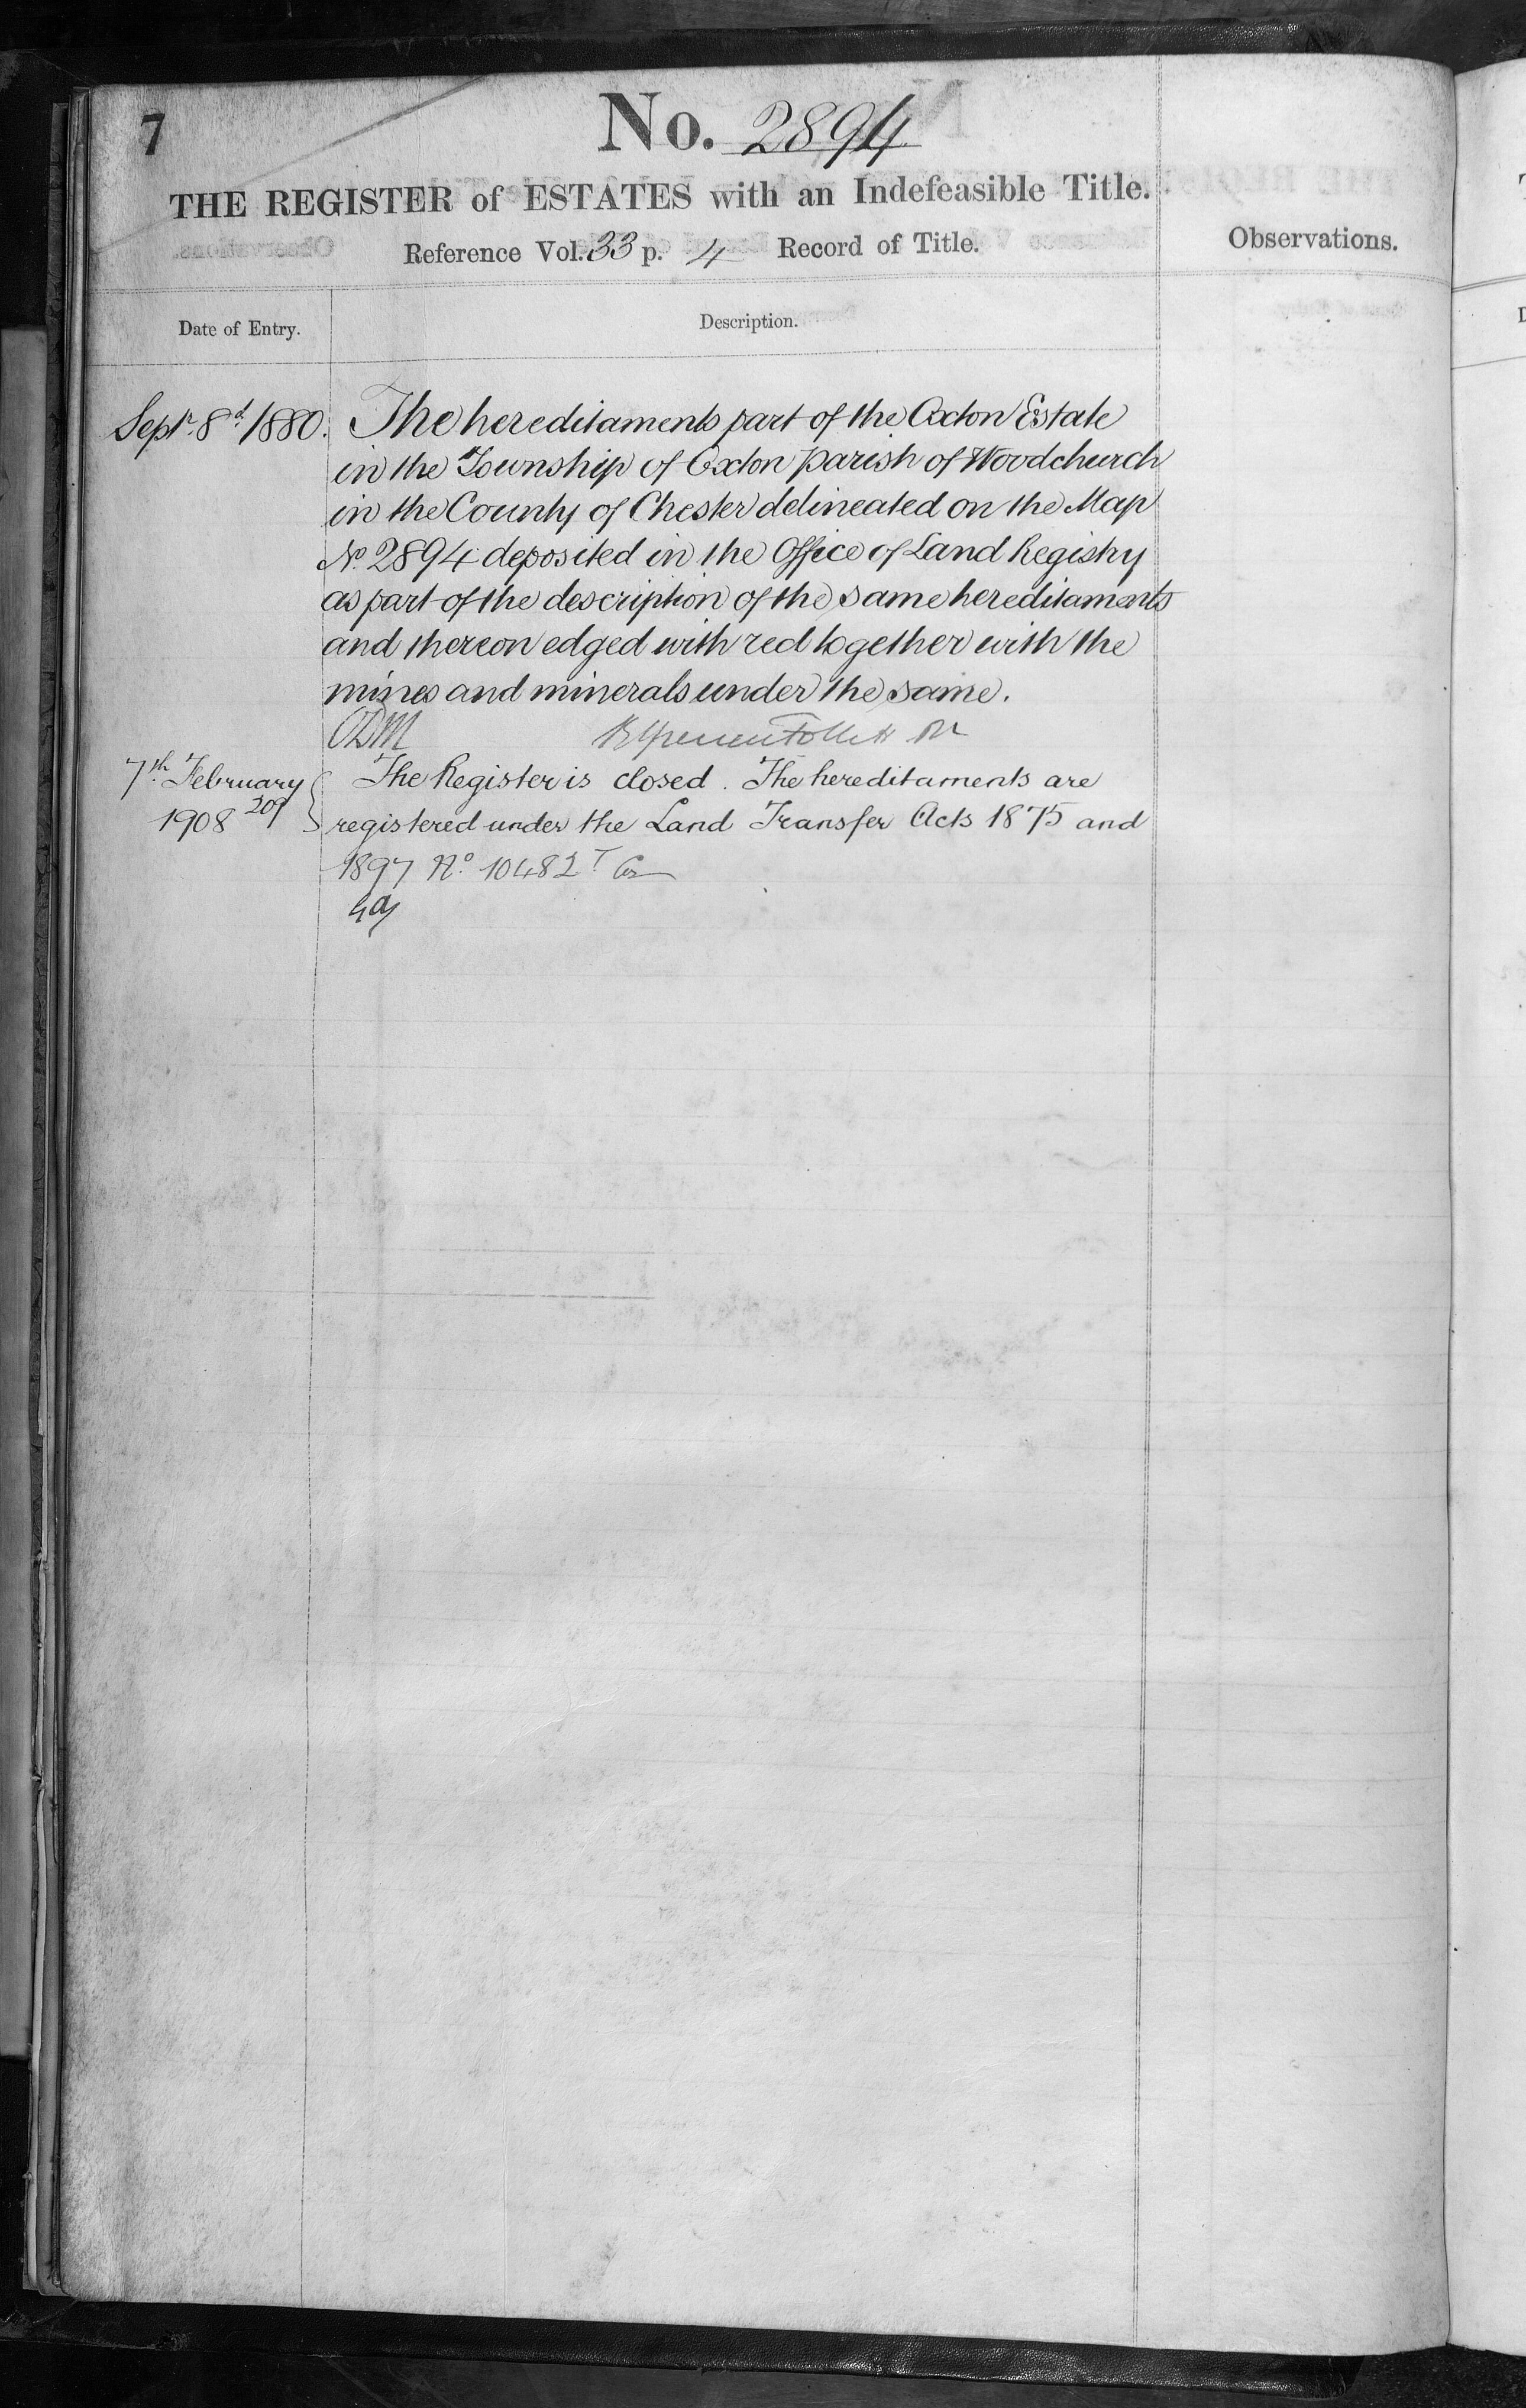 7
No. 2894
THE REGISTER of ESTATES with an Indefeasible Title.
Reference Vol. 33 p. 4 Record of Title.
Observations.
Date of Entry.
Description.
Septr. 8d. 1880. The hereditaments part of the Oxton Estate
in the Township of Oxton parish of Woodchurch
in the County of Chester delineated on the Map
No. 2894 deposited in the Office of Land Registry
as part of the description of the same hereditaments
and thereon edged with red together with the
mines and minerals under the same.
ODM
7th. February The Register is closed. The hereditaments are
1908 registered under the Land Transfer Acts 1875 and
1897 No. 10482